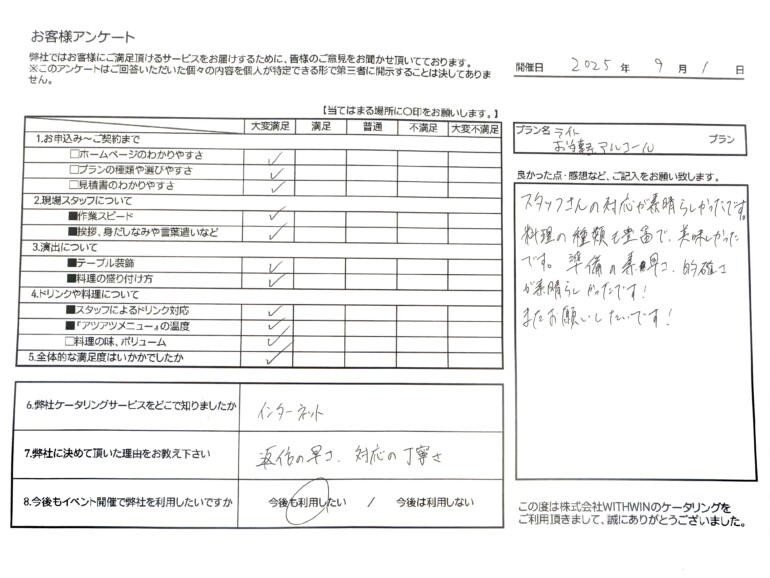 お客様アンケート
弊社ではお客様にご満足頂けるサービスをお届けするために、皆様のご意見をお聞かせ頂いてております。
※このアンケートはご回答いただいた個々の内容を個人が特定できる形で第三者に開示することは決してありま
せん。
開催日 2025 年 9 月 1 日
【当てはまる場所に〇印をお願いします。】
大変満足 満足 普通 不満足 大変不満足
1.お申込み～ご契約まで
□ホームページのわかりやすさ ✓
□プランの種類や選びやすさ ✓
□見積書のわかりやすさ ✓
2.現場スタッフについて
■作業スピード ✓
■挨拶、身だしなみや言葉遣いなど ✓
3.演出について
■テーブル装飾 ✓
■料理の盛り付け方 ✓
4.ドリンクや料理について
■スタッフによるドリンク対応 ✓
■『アツアツメニュー』の温度 ✓
□料理の味、ボリューム ✓
5.全体的な満足度はいかかでしたか ✓
プラン名 ライト
アルコール プラン
良かった点・感想など、ご記入をお願い致します。
スタッフさんの対応が素晴らしかったです。
料理の種類も豊富で、美味しかった
です。準備の素早さ、的確さ
が素晴らしかったです!
またお願いしたいです!
6.弊社ケータリングサービスをどこで知りましたか インターネット
7.弊社に決めて頂いた理由をお教え下さい 返信の早さ、対応の丁寧さ
8.今後もイベント開催で弊社を利用したいですか 今後も利用したい / 今後は利用しない
この度は株式会社WITHWINのケータリングを
ご利用頂きまして、誠にありがとうございました。